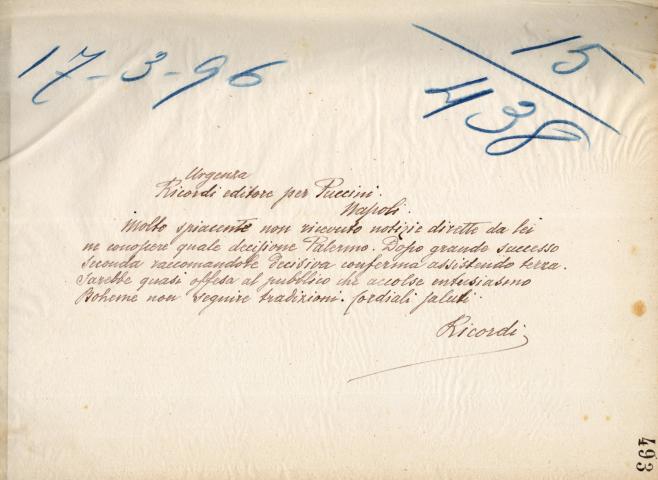 17-3-96
15
438
Urgenza
Ricordi editore per Puccini
Napoli.
Molto spiacente non ricevuto notizie dirette da lei
ne conoscere quale decisione Palermo. Dopo grande successo
seconda raccomandole decisiva conferma assistendo terza.
Sarebbe quasi offesa al pubblico che accolse entusiasmo
Boheme non seguire tradizioni. Cordiali saluti
Ricordi
493